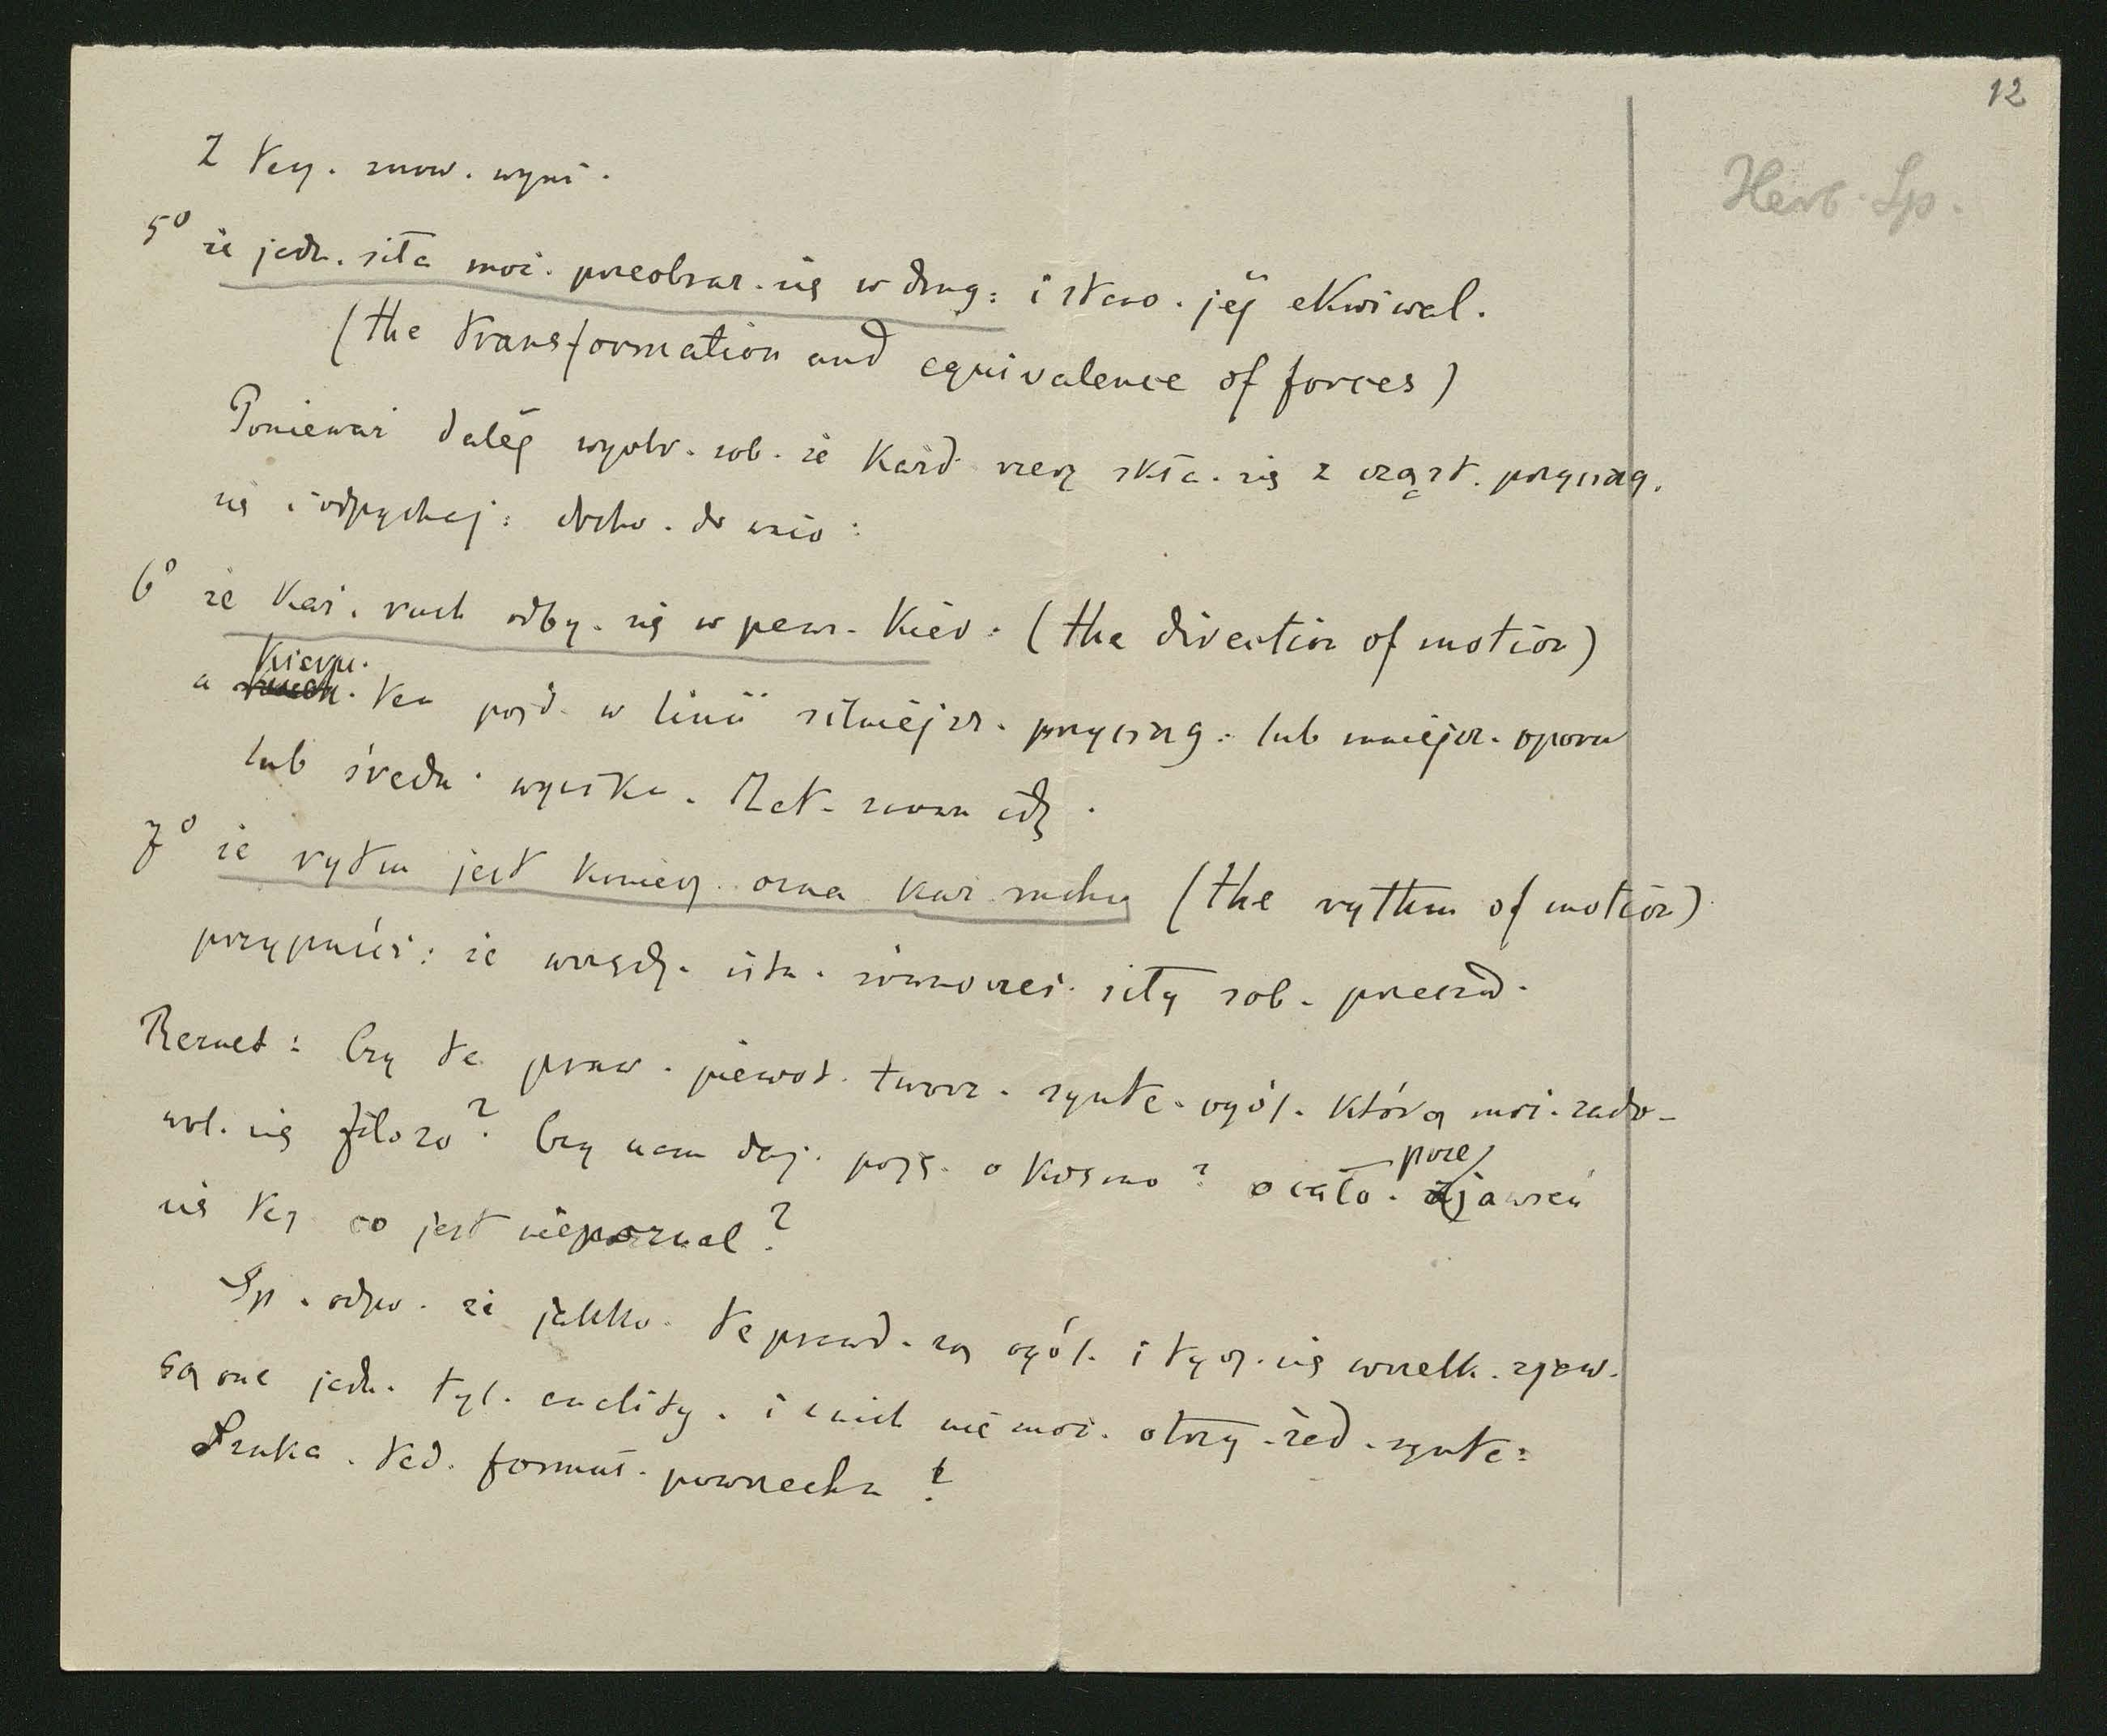 12
Herb. Sp.
Z tej. znow. wyni.
5° że jedn. siła moż. przeobraz. się w drug: i stano. jej ekwiwal.
(the transformation and equivalence of forces)
Ponieważ daléj wyobr. sob. że każd. rzecz skła. się z cząst. przyciąg.
się i odpychaj: docho. do wnio:
6° że każ. ruch odby. się w pewn. kier. (the direction of motion)
a kierun. ten pojd. w linii silniejsz. przyciąg. lub mniejsz. oporu
lub średn. wypadka.
7° że rytm jest koniecz. ozna każ. ruchu (the rythm of motion)
przypuść: że wszędz. istn. równocześ. siły sob. przeciwd.
Rezult: Czy te praw. pierwot. tworz. synte. ogól. którą moż. zado-
wol. się filozo? Czy nam daj. poję. o kosmo? o cało. przejawień
się tej co jest niepoznal?
Sp. odpo. że jakko. te prawd. są ogól. i tycz. się wszelk. zjaw.
są one jedn. tyl. anality. i z nich nie moż. otrzy. żad. synte:
Szuka. ted. formuł. powszechn!